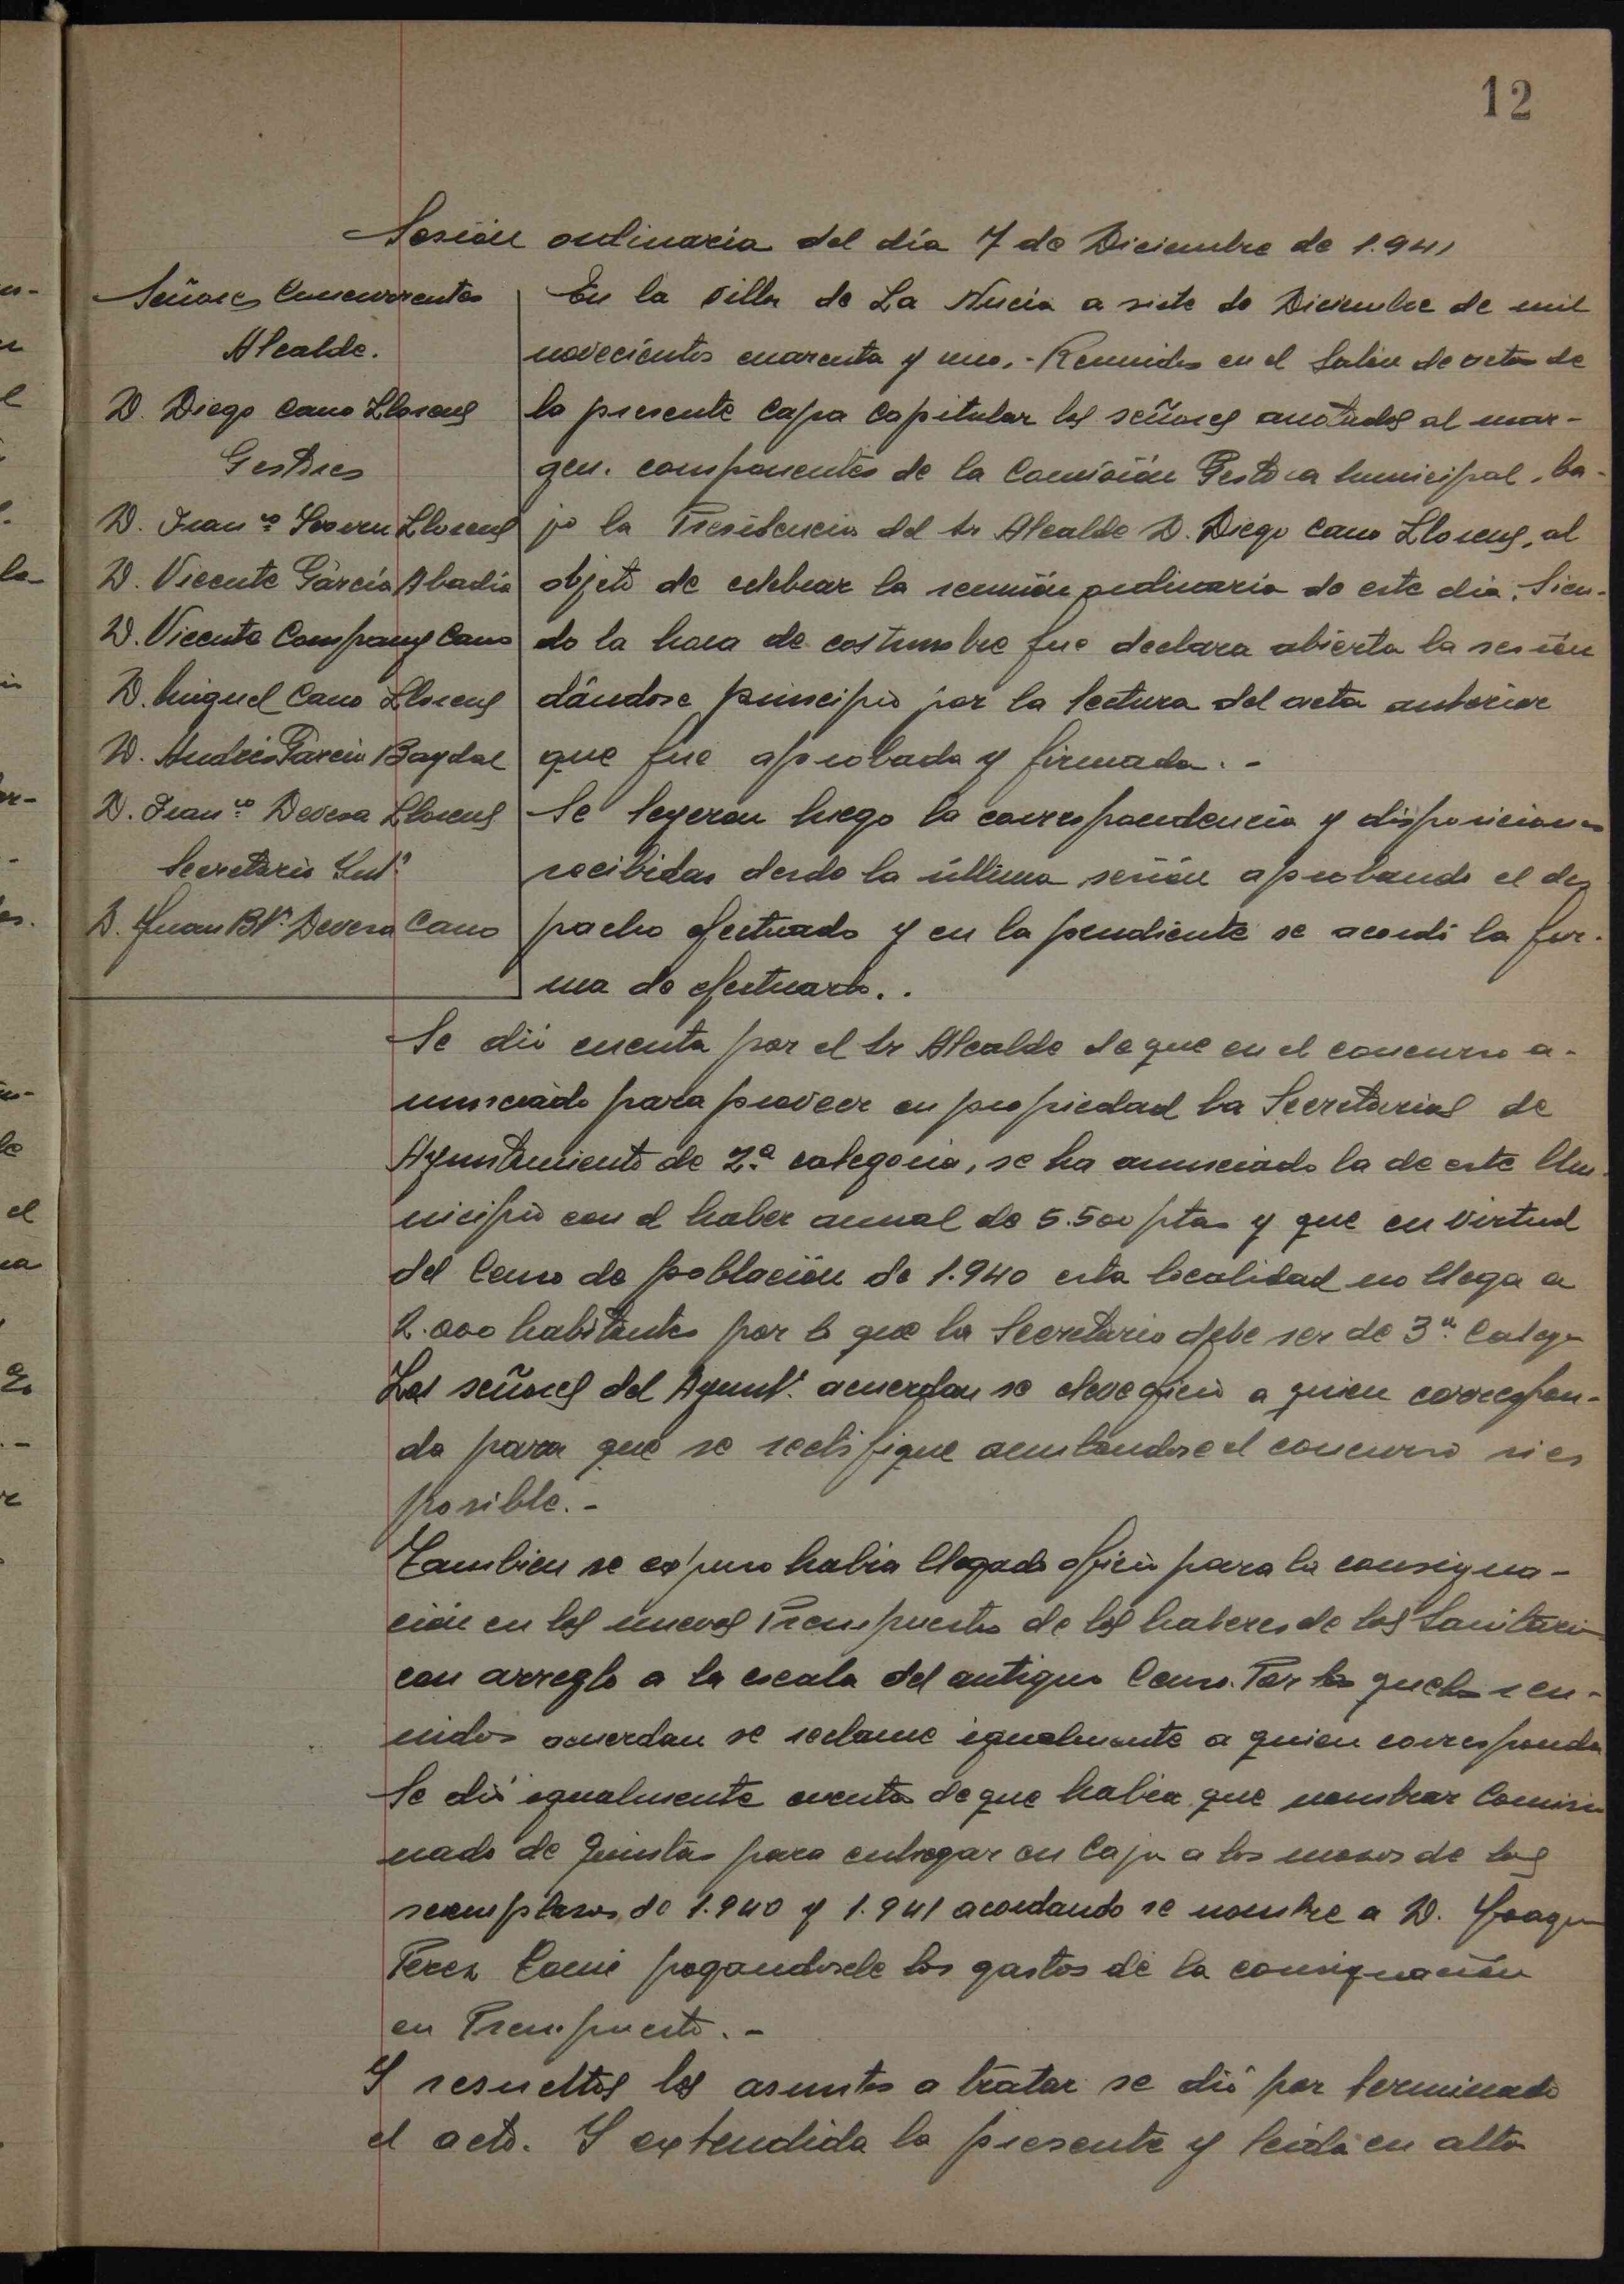 12
Sesión ordinaria del día 7 de Diciembre de 1.941
Señores Concurrentes
Alcalde.
D. Diego Cano Llorens
Gestores
D. Franco Llorens
D. Vicente García Abadía
D. Vicente Company Cano
D. Miguel Cano Llorens
D. Andrés García Bagdal
D. Franco Devesa Llorens
Secretario Intº
D. Juan Bta Devesa Cano
En la villa de La Nucía a siete de Diciembre de mil
novecientos cuarenta y uno.- Reunidos en el Salón de actos de
la presente Casa Capitular los señores anotados al mar-
gen. componentes de la Comisión Gestora Municipal, ba-
jo la Presidencia del Sr Alcalde D. Diego Cano Llorens, al
objeto de celebrar la reunión ordinaria de este día. Sien-
do la hora de costumbre fue declara abierta la sesión
dándose principio por la lectura del acta anterior
que fue aprobada y firmada.-
Se leyeron luego la correspondencia y disposiciones
recibidas desde la última sesión aprobando el des
pacho efectuado y en la pendiente se acordó la for-
ma de efectuarlo..
Se dió cuenta por el Sr Alcalde de que en el concurso a-
nunciado para proveer en propiedad la Secretarias de
Ayuntamiento de 2ª categoria, se ha anunciado la de este Mu-
nicipio con el haber anual de 5.500 ptas y que en virtud
del Censo de población de 1.940 esta localidad no llega a
2.000 habitantes por lo que la Secretaria debe ser de 3ª Categª
Los señores del Ayuntº acuerdan se eleve oficio a quien correspon-
da para que se rectifique anulandose el concurso si es
posible.-
Tambien se expuso habia llegado oficio para la consigna-
ción en los nuevos Presupuestos de los haberes de los Sanitarios
con arreglo a la escala del antiguo Censo. Por lo que los reu-
nidos acuerdan se reclame igualmente a quien corresponda
Se dió igualmente cuenta de que habia que nombrar Comisio
nado de Quintas para entregar en Caja a los mozos de los
reemplazos de 1.940 y 1.941 acordando se nombre a D. Joaquin
Perez pagandosele los gastos de la consignación
en Presupuesto.-
Y resueltos los asuntos a tratar se dió por terminado
el acto. Y extendida la presente y leida en alta